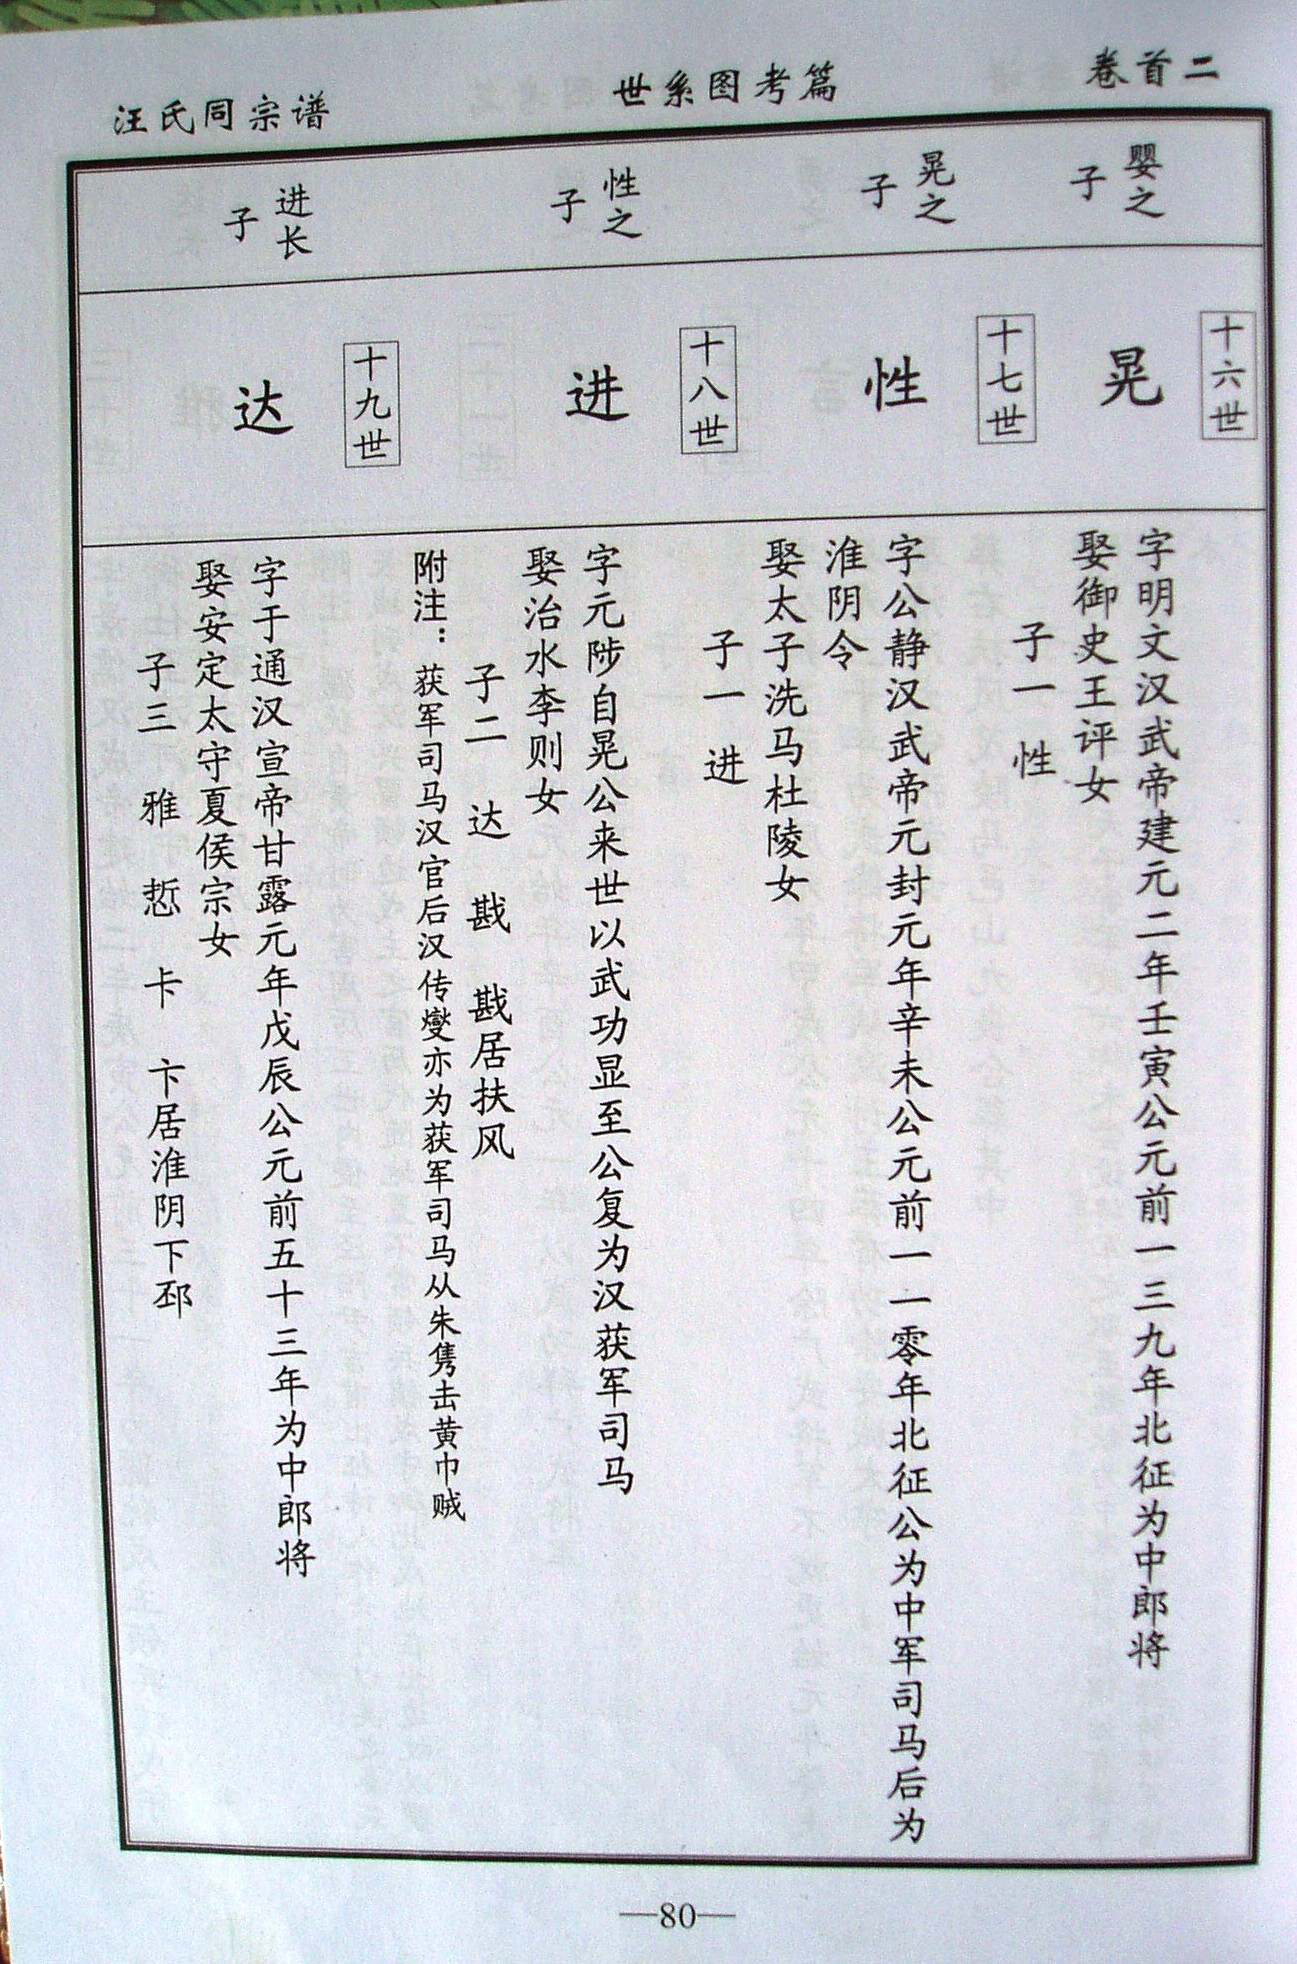 卷首二
世系图考篇
汪氏同宗谱
婴之
子
十六世
晃
字明文汉武帝建元二年壬寅公元前一三九年北征为中郎将
娶御史王评女
子一 性
晃之
子
十七世
性
字公静汉武帝元封元年辛未公元前一一零年北征公为中军司马后为
淮阴令
娶太子洗马杜陵女
子一 进
性之
子
十八世
进
字元陟自晃公来世以武功显至公复为汉获军司马
娶治水李则女
子二 达 戡 戡居扶风
附注：获军司马汉官后汉传燮亦为获军司马从朱隽击黄巾贼
进长
子
十九世
达
字于通汉宣帝甘露元年戊辰公元前五十三年为中郎将
娶安定太守夏侯宗女
子三 雅 悊 卡 卞居淮阴下邳
—80—